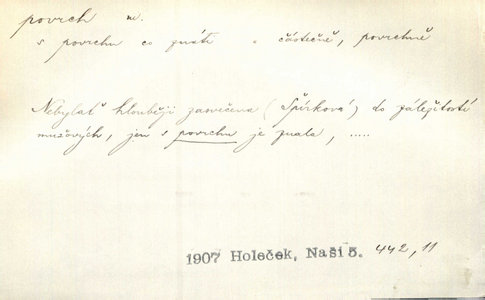 povrch m.
s povrchu co znáti = částečně, povrchně
Nebylať hlouběji zasvěcena (Špírková) do záležitostí
mužových, jen s povrchu je znala, .....
1907 Holeček, Naši 5. 442, 11